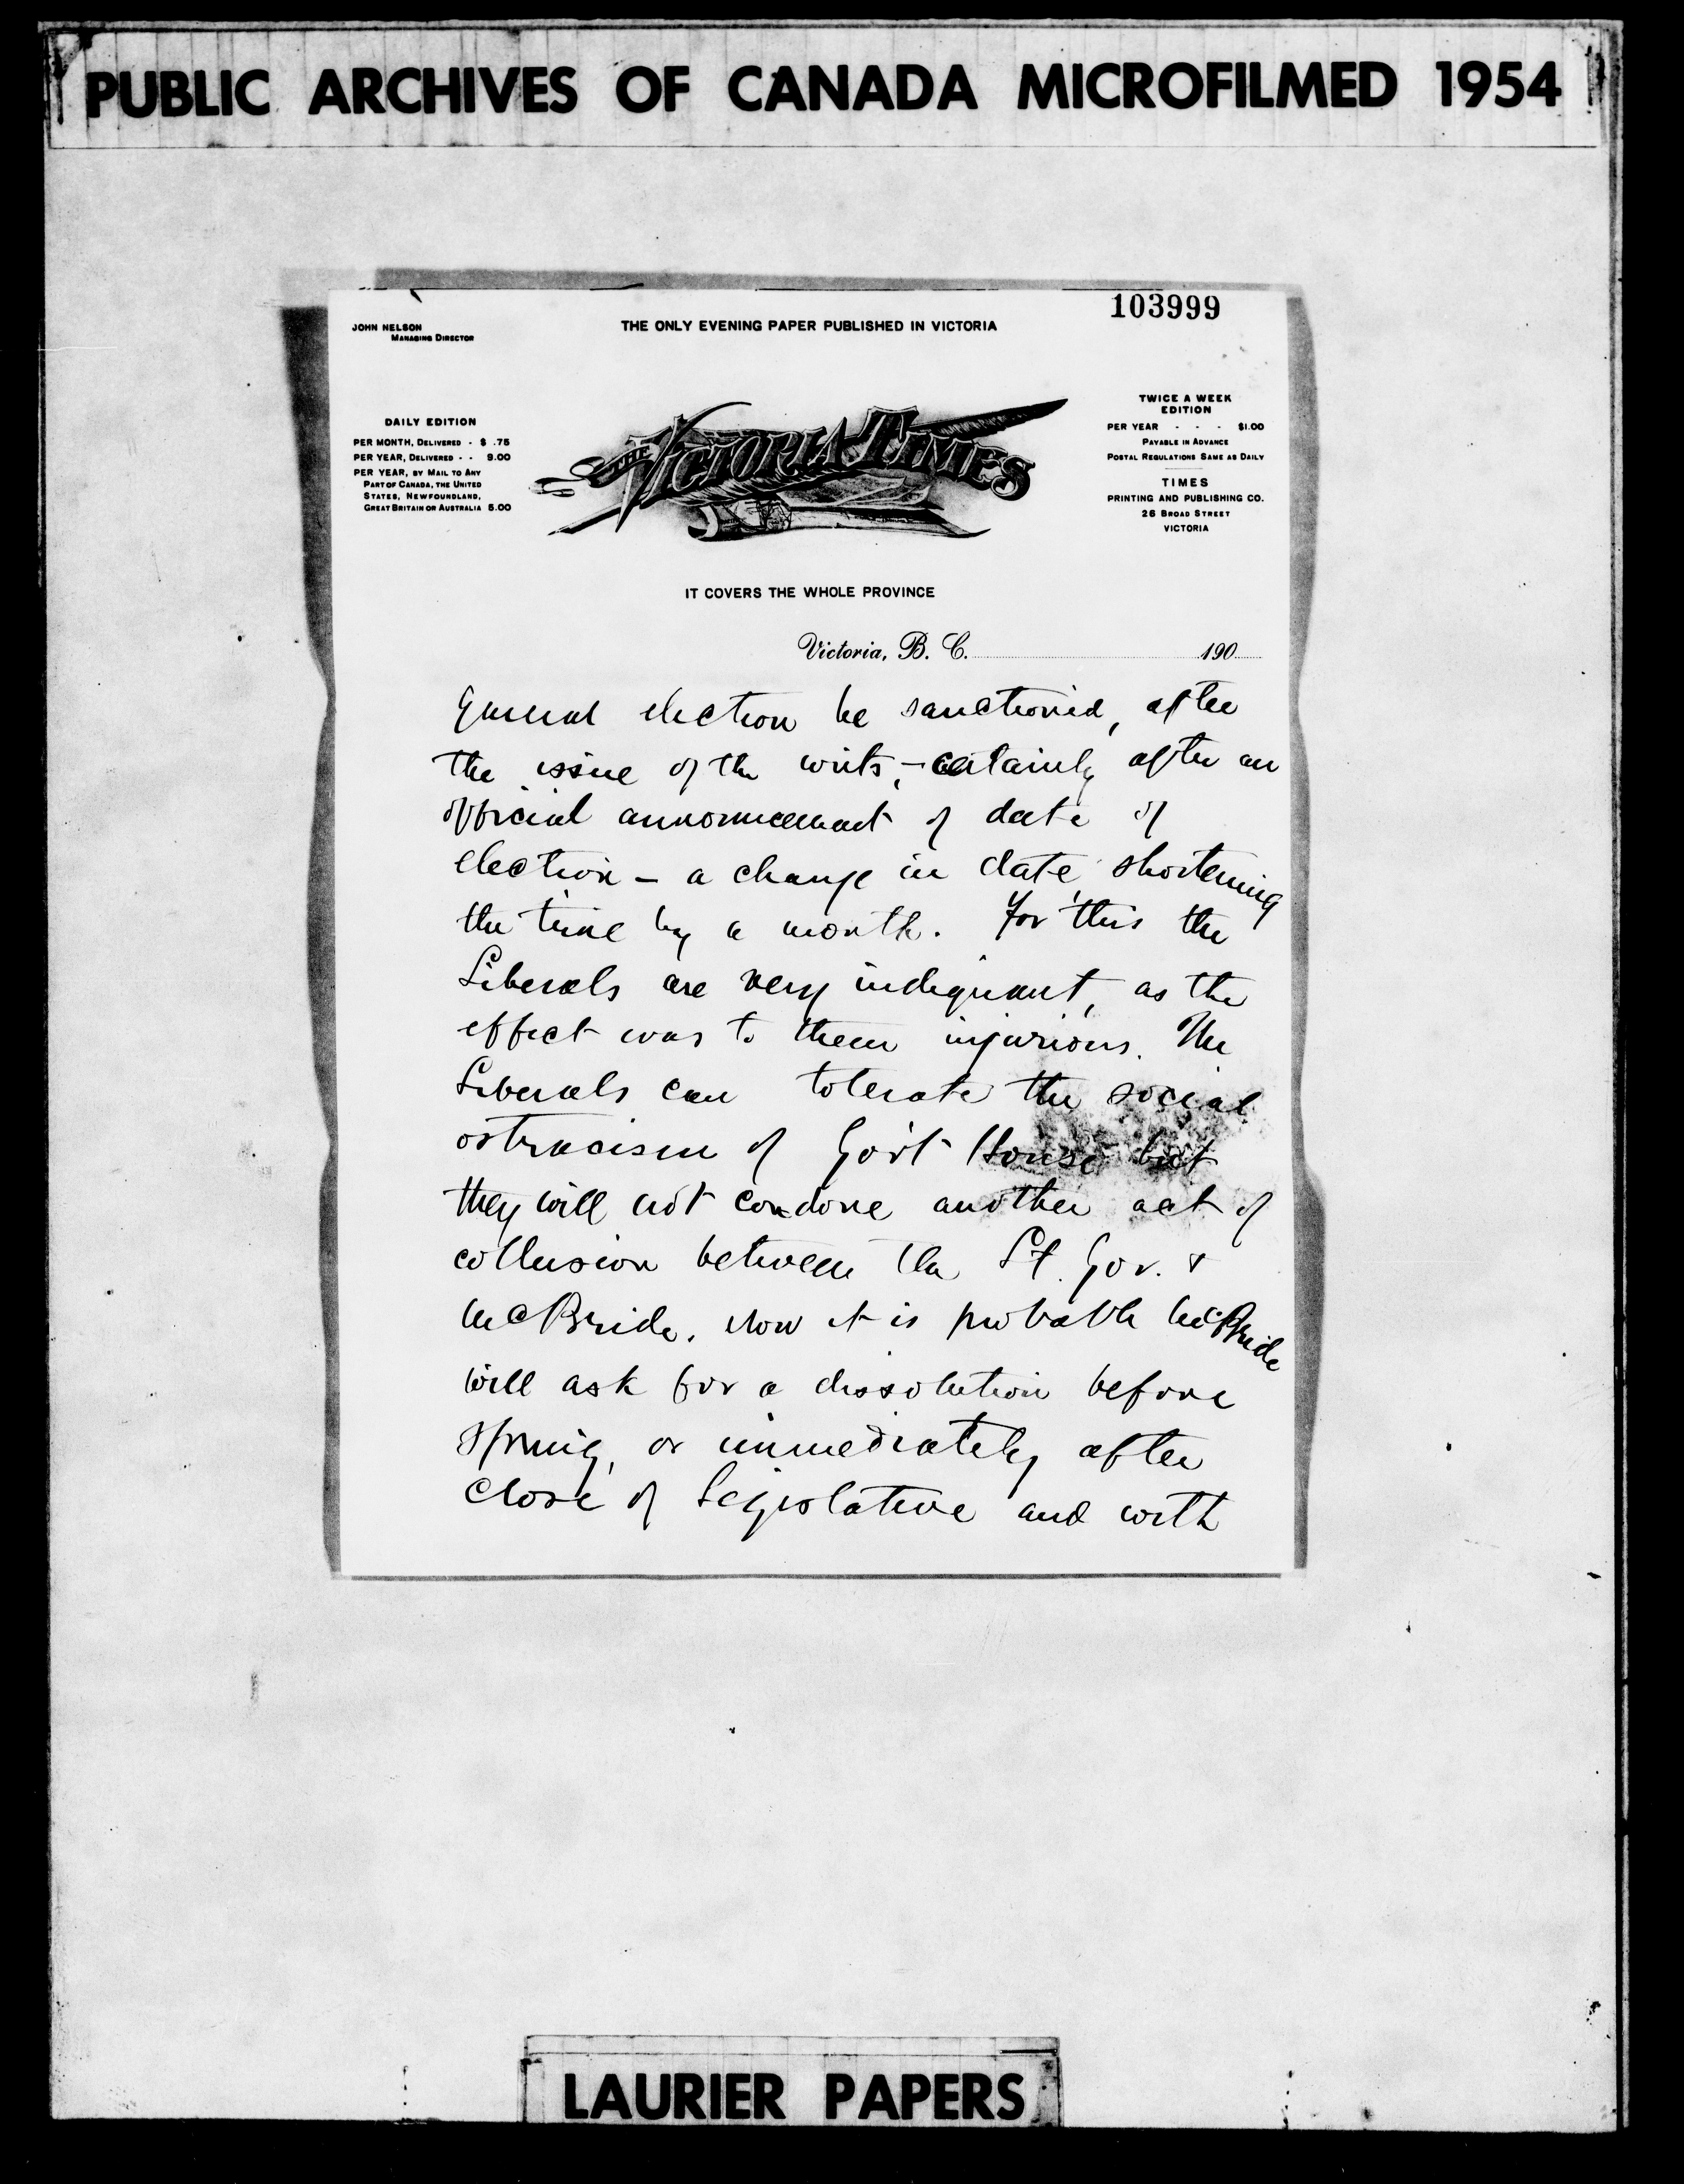 PUBLIC ARCHIVES OF CANADA MICROFILMED 1954
103999
JOHN NELSON
MANAGING DIRECTOR
THE ONLY EVENING PAPER PUBLISHED IN VICTORIA
DAILY EDITION
PER MONTH, DELIVERED - $ .75
PER YEAR, DELIVERED - - 9.00
PER YEAR, BY MAIL TO ANY
PART OF CANADA, THE UNITED
STATES, NEWFOUNDLAND,
GREAT BRITAIN OR AUSTRALIA 5.00
THE VICTORIA TIMES
TWICE A WEEK
EDITION
PER YEAR - - - $1.00
PAYABLE IN ADVANCE
POSTAL REGULATIONS SAME AS DAILY
TIMES
PRINTING AND PUBLISHING CO.
26 BROAD STREET
VICTORIA
IT COVERS THE WHOLE PROVINCE
Victoria, B. C. 190
general election be sanctioned, after
the issue of the writs, - certainly after an
official announcement of date of
election - a change in date shortening
the time by a month. For this the
Liberals are very indignant, as the
effect was to them injurious. The
Liberals can tolerate the social
ostracism of Gov't House but
they will not condone another act of
collusion between the Lt. Gov. &
McBride. Now it is probable McBride
will ask for a dissolution before
spring, or immediately after
close of Legislative and with
LAURIER PAPERS